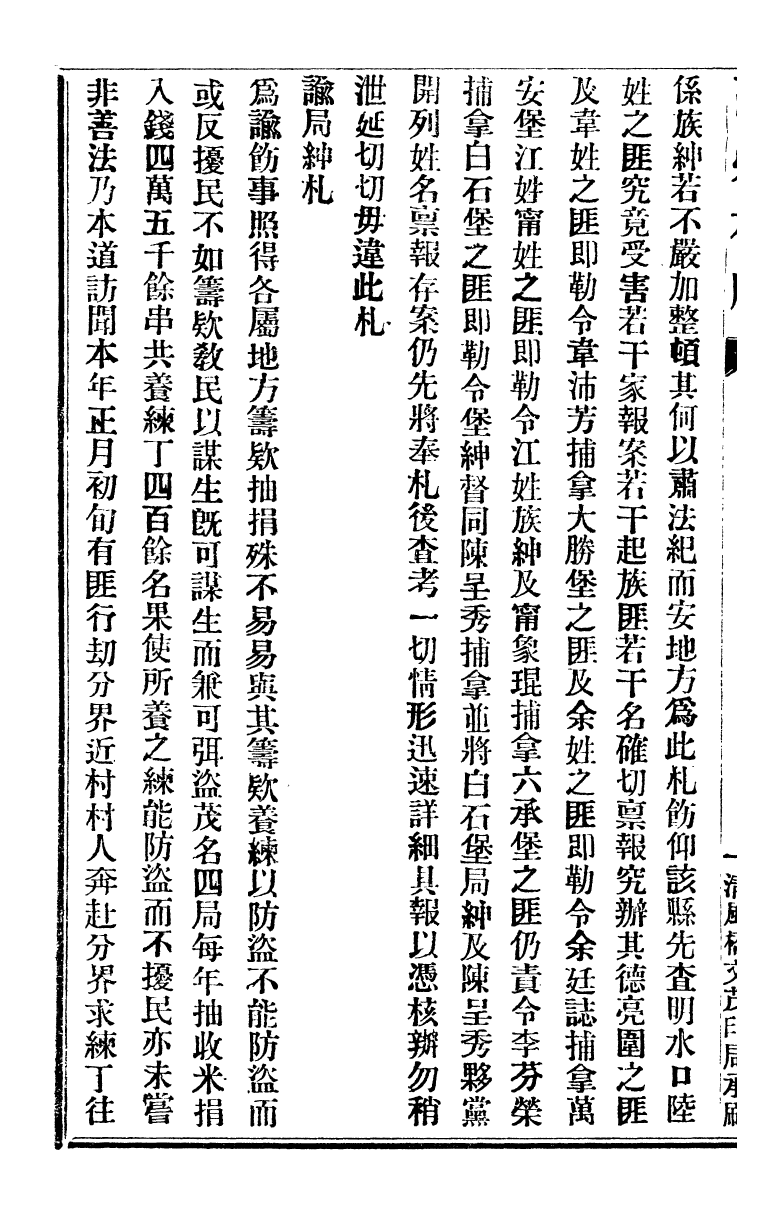 係族紳若不嚴加整頓其何以肅法紀而安地方爲此札飭仰該縣先查明水口陸
姓之匪究竟受害若干家報案若干起族匪若干名確切稟報究辦其德亮圍之匪
及韋姓之匪即勒令韋沛芳捕拿大勝堡之匪及余姓之匪即勒令余廷誌捕拿萬
安堡江姓甯姓之匪即勒令江姓族紳及甯象琨捕拿六承堡之匪仍責令李芬榮
捕拿白石堡之匪即勒令堡紳督同陳呈秀捕拿並將白石堡局紳及陳呈秀夥黨
開列姓名稟報存案仍先將奉札後查考一切情形迅速詳細具報以憑核辦勿稍
泄延切切毋違此札
諭局紳札
爲諭飭事照得各屬地方籌欵抽捐殊不易易與其籌欵養練以防盜不能防盜而
或反擾民不如籌欵敎民以謀生旣可謀生而兼可弭盜茂名四局每年抽收米捐
入錢四萬五千餘串共養練丁四百餘名果使所養之練能防盜而不擾民亦未嘗
非善法乃本道訪聞本年正月初旬有匪行刧分界近村村人奔赴分界求練丁往